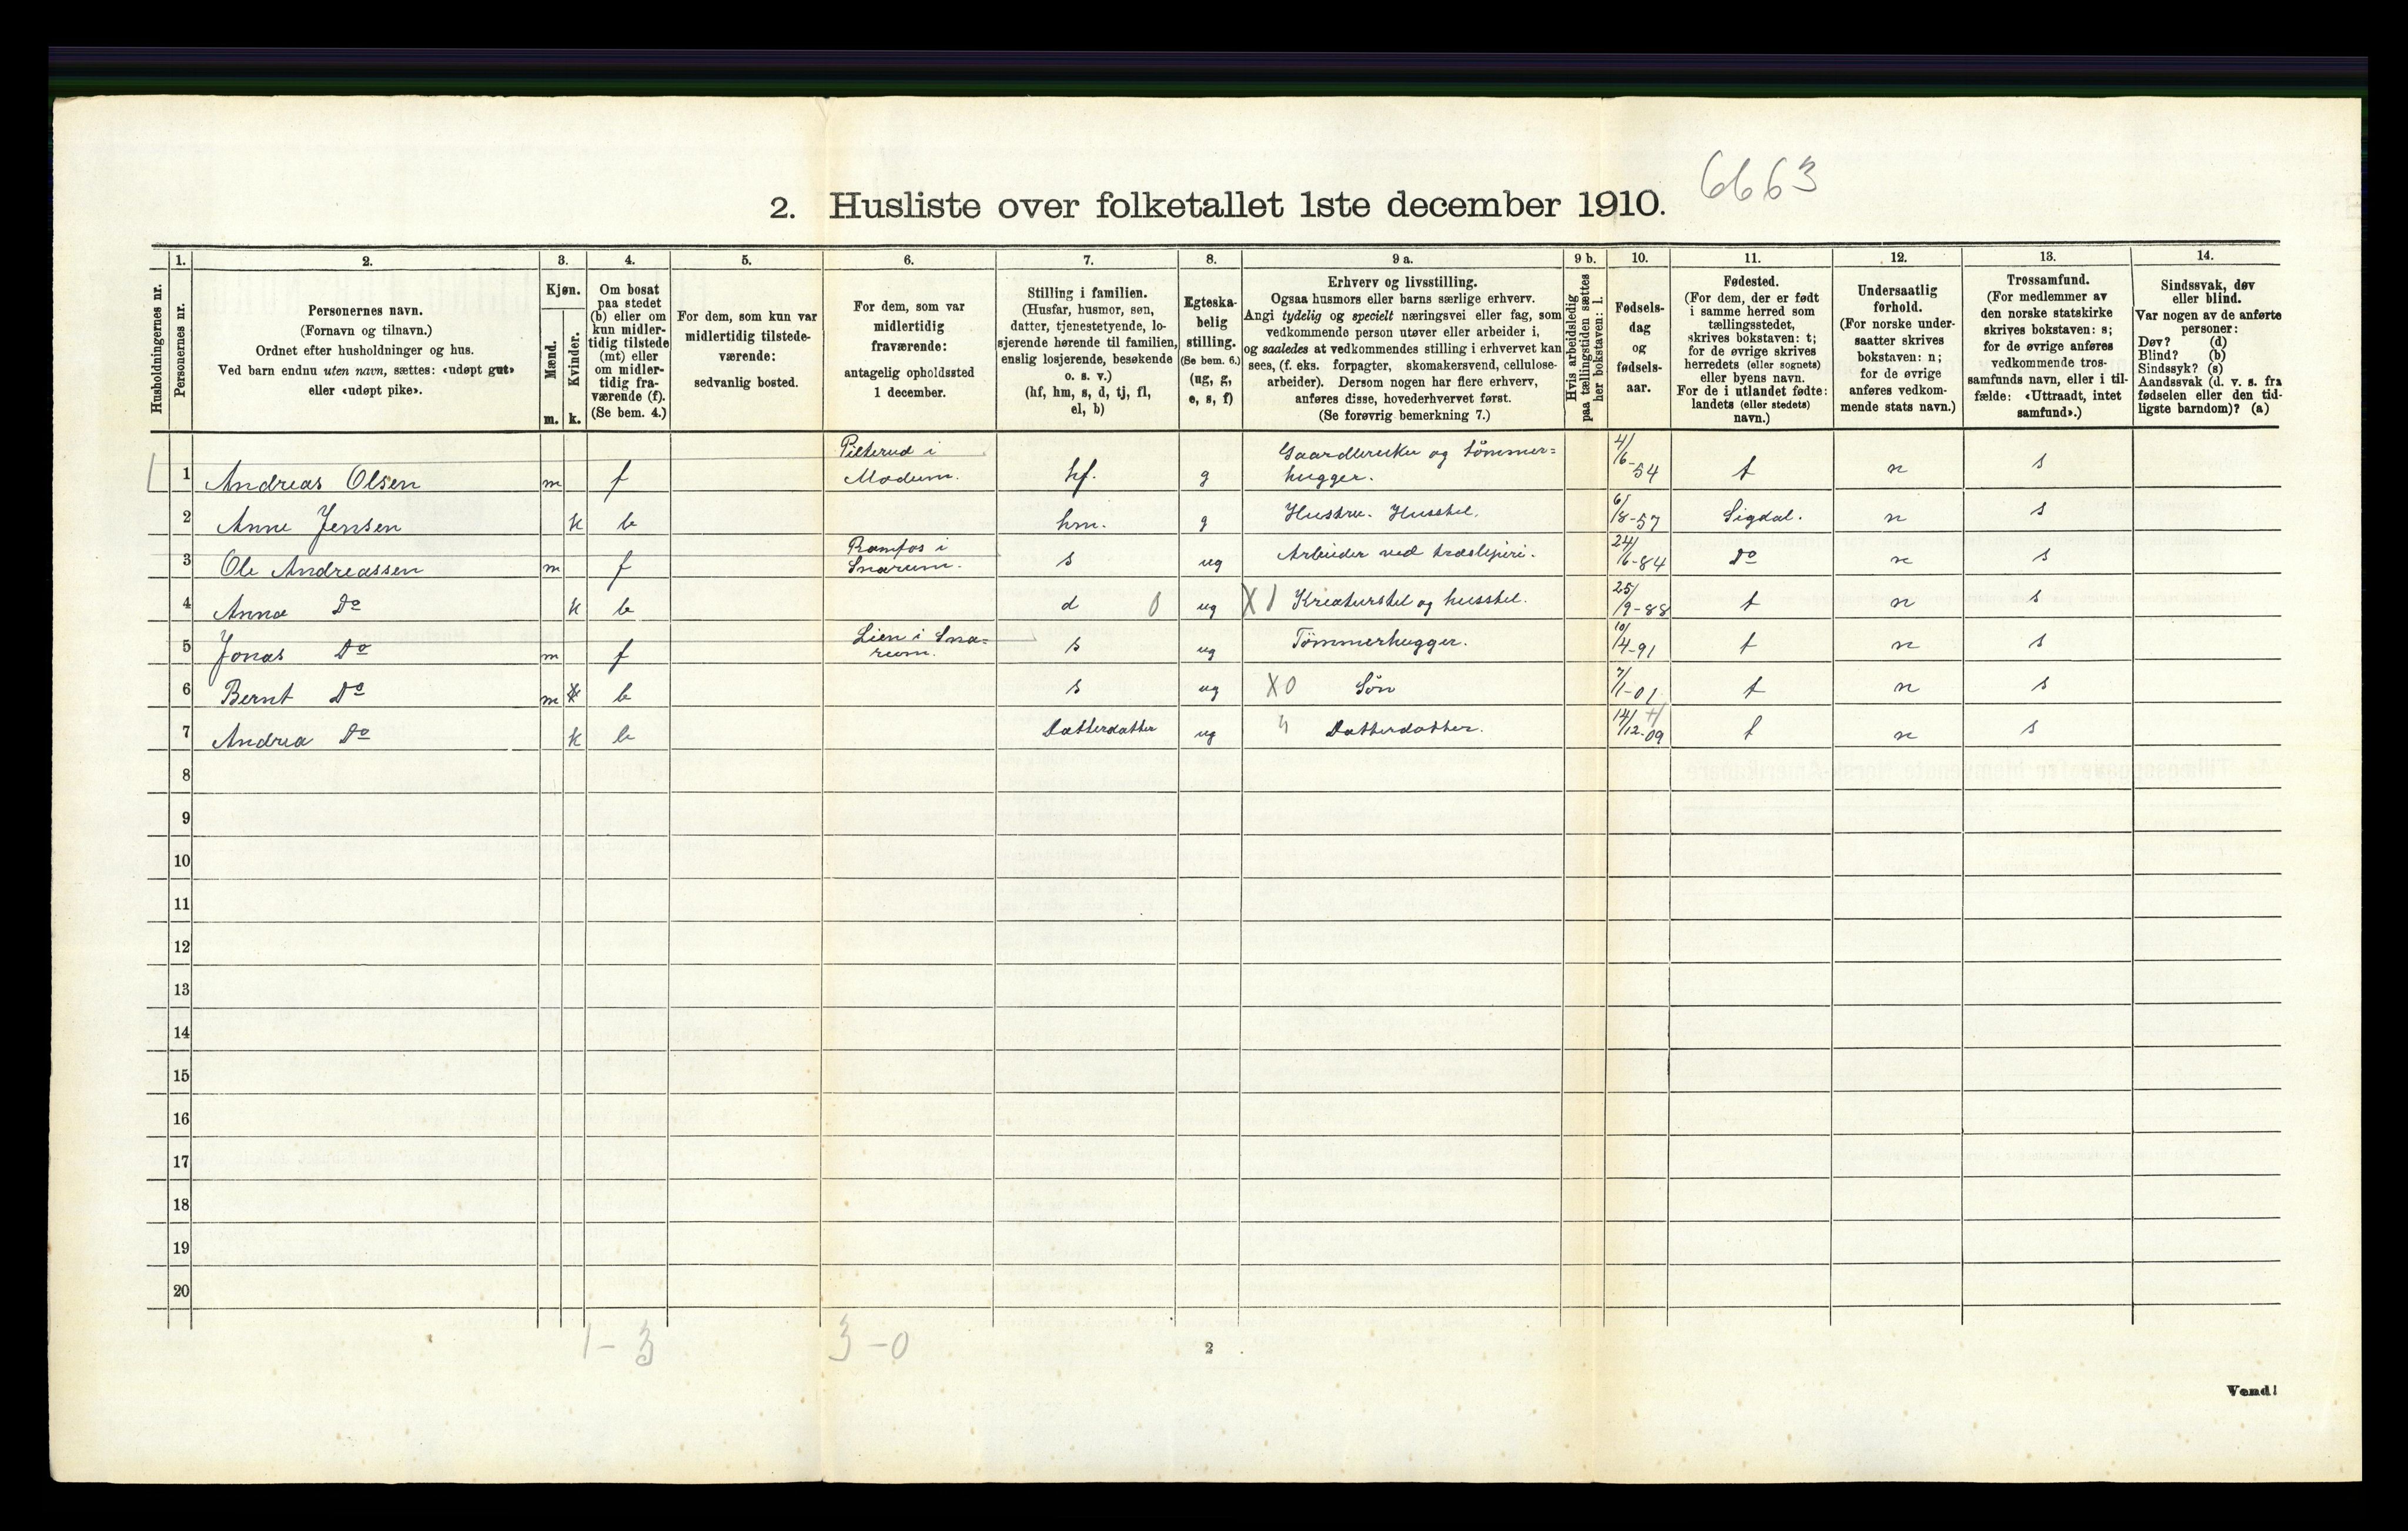 6663
2. Husliste over folketallet 1ste december 1910.
Husholdningernes nr.
1.
Personernes nr.
2.
Personernes navn.
(Fornavn og tilnavn.)
Ordnet efter husholdninger og hus.
Ved barn endnu uten navn, sættes: «udøpt gut»
eller «udøpt pike».
3.
Kjøn.
Mænd.
m.
Kvinder.
k.
4.
Om bosat
paa stedet
(b) eller om
kun midler-
tidig tilstede
(mt) eller
om midler-
tidig fra-
værende (f).
(Se bem. 4.)
5.
For dem, som kun var
midlertidig tilstede-
værende:
sedvanlig bosted.
6.
For dem, som var
midlertidig
fraværende:
antagelig opholdssted
1 december.
7.
Stilling i familien.
(Husfar, husmor, søn,
datter, tjenestetyende, lo-
sjerende hørende til familien,
enslig losjerende, besøkende
o. s. v.)
(hf, hm, s, d, tj, fl,
el, b)
8.
Egteska-
belig
stilling.
(Se bem. 6.)
(ug, g,
e, s, f)
9 a.
Erhverv og livsstilling.
Ogsaa husmors eller barns særlige erhverv.
Angi tydelig og specielt næringsvei eller fag, som
vedkommende person utøver eller arbeider i,
og saaledes at vedkommendes stilling i erhvervet kan
sees, (f. eks. forpagter, skomakersvend, cellulose-
arbeider). Dersom nogen har flere erhverv,
anføres disse, hovederhvervet først.
(Se forøvrig bemerkning 7.)
9 b.
Hvis arbeidsledig
paa tællingstiden sættes
her bokstaven: l.
10.
Fødsels-
dag
og
fødsels-
aar.
11.
Fødested.
(For dem, der er født
i samme herred som
tællingsstedet,
skrives bokstaven: t;
for de øvrige skrives
herredets (eller sognets)
eller byens navn.
For de i utlandet fødte:
landets (eller stedets)
navn.)
12.
Undersaatlig
forhold.
(For norske under-
saatter skrives
bokstaven: n;
for de øvrige
anføres vedkom-
mende stats navn.)
13.
Trossamfund.
(For medlemmer av
den norske statskirke
skrives bokstaven: s;
for de øvrige anføres
vedkommende tros-
samfunds navn, eller i til-
fælde: «Uttraadt, intet
samfund».)
14.
Sindssvak, døv
eller blind.
Var nogen av de anførte
personer:
Døv? (d)
Blind? (b)
Sindssyk? (s)
Aandssvak (d. v. s. fra
fødselen eller den tid-
ligste barndom)? (a)
1 1 Andreas Olsen m f Modum. hf. g Gaardbruker og tömmer=
hugger. 4/6-54 t n s
2 Anne Jensen k b hm. g Hustru. Husstel. 6/8-57 Sigdal. n s
3 Ole Andreassen m f Ramfos i
Snarum. s ug Arbeider ved træsliperi. 24/6-84 Do n s
4 Anna Do k b d 0 ug X 1 Kreaturstel og husstel. 25/9-88 t n s
5 Jonas Do m f Lien i Sna=
rum. s ug Tömmerhugger. 10/4-91 t n s
6 Bernt Do m k b s ug X 0 Sön 7/1-01 t n s
7 Andrea Do k b Datterdatter ug Datterdatter. 14/12-09 t n s
8
9
10
11
12
13
14
15
16
17
18
19
20
1 - 3 3 - 0
2
Vend!